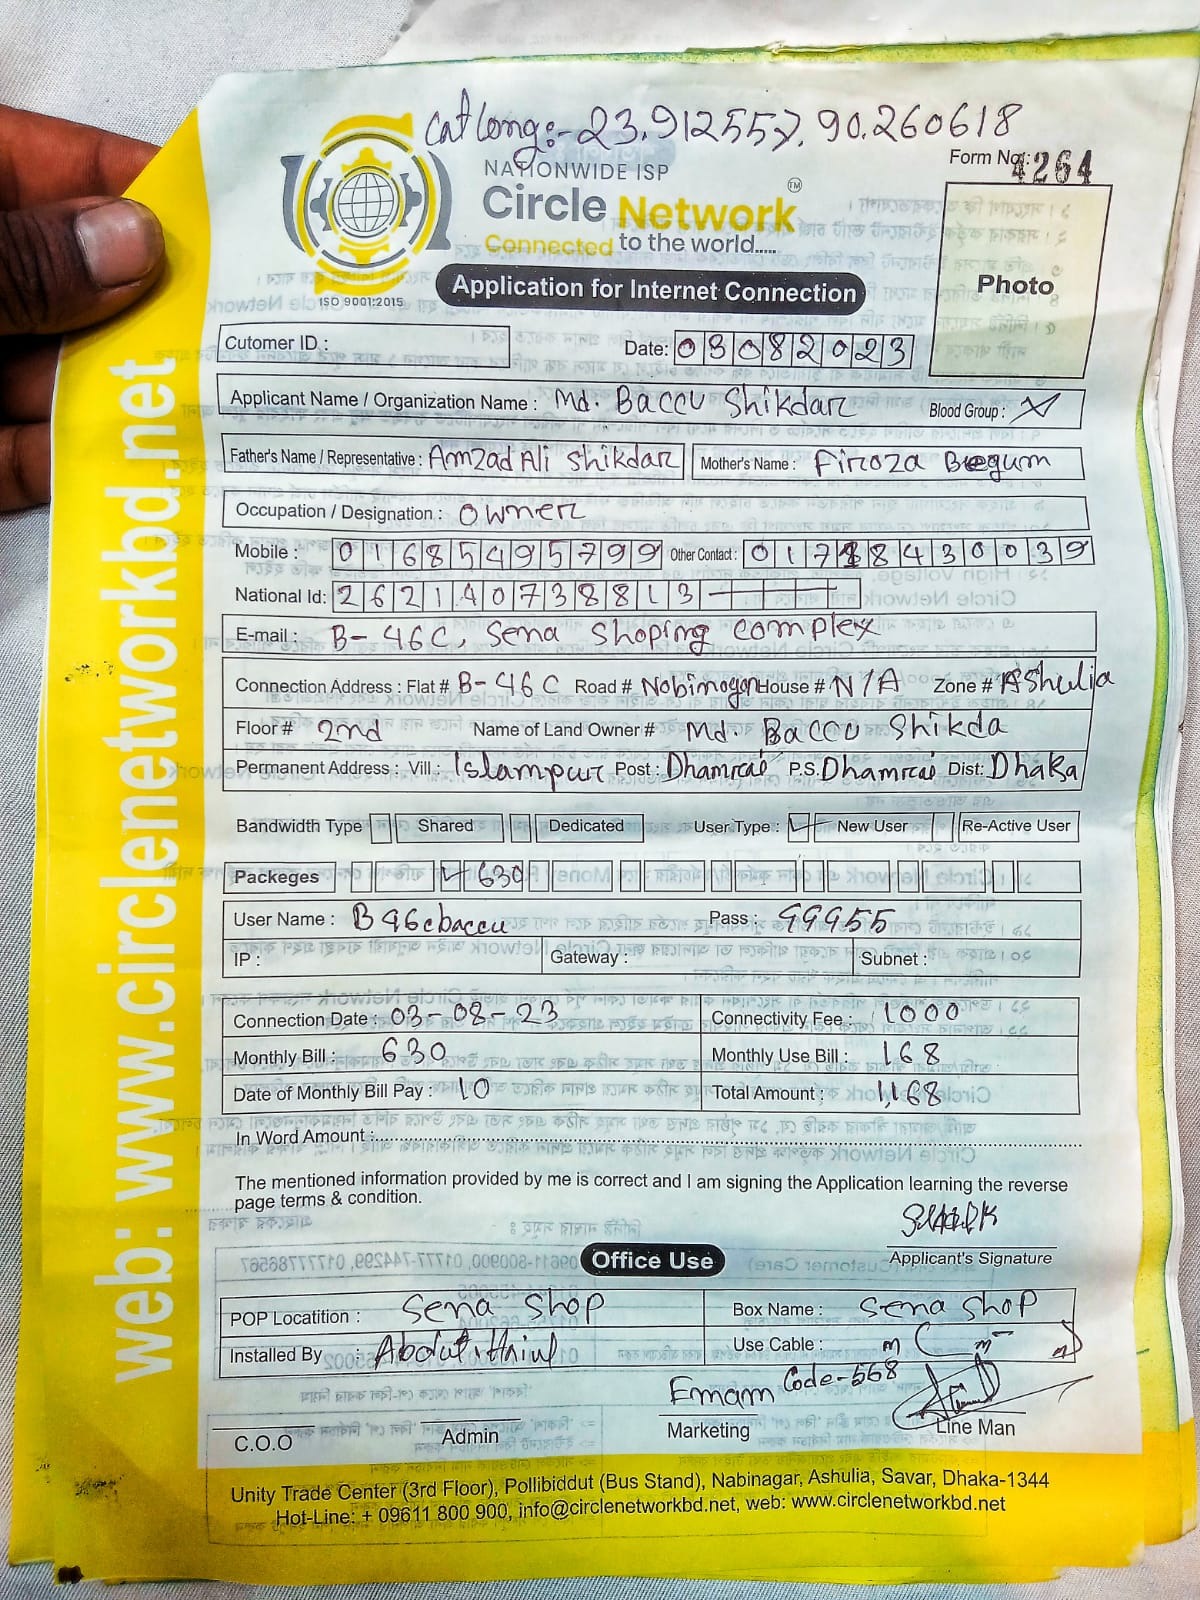 Lat long:- 23.912557, 90.260618
NATIONWIDE ISP
Form No.: 4264
Circle Network TM
Connected to the world.....
ISO 9001:2015
Application for Internet Connection
Photo
Cutomer ID. :
Date: 03082023
Applicant Name / Organization Name : Md. Baccu Shikdar Blood Group :
Father's Name / Representative : Amzad Ali Shikdar Mother's Name : Firoza Begum
Occupation / Designation : Owner
Mobile : 01685495799 Other Contact : 01718430039
National Id: 2621407388813
E-mail : B-46C, Sena Shoping complex
Connection Address : Flat # B-46C Road # Nobinogor House # N/A Zone # Ashulia
Floor # 2nd Name of Land Owner # Md. Baccu Shikda
Permanent Address : Vill : Islampur Post : Dhamrai P.S. Dhamrai Dist: Dhaka
Bandwidth Type Shared Dedicated User Type : New User Re-Active User
Packeges 630
User Name : B46cbaccu Pass : 99955
IP : Gateway : Subnet :
Connection Date : 03-08-23 Connectivity Fee : 1000
Monthly Bill : 630 Monthly Use Bill : 168
Date of Monthly Bill Pay : 10 Total Amount : 1,168
In Word Amount :
The mentioned information provided by me is correct and I am signing the Application learning the reverse
page terms & condition.
Applicant's Signature
Office Use
POP Locatition : Sena Shop Box Name : Sena Shop
Installed By : Use Cable : m ( m- )
Emam Code-568
C.O.O Admin Marketing Line Man
Unity Trade Center (3rd Floor), Pollibiddut (Bus Stand), Nabinagar, Ashulia, Savar, Dhaka-1344
Hot-Line: + 09611 800 900, info@circlenetworkbd.net, web: www.circlenetworkbd.net
web: www.circlenetworkbd.net